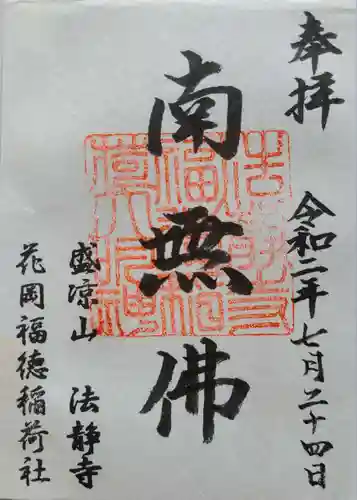 奉拝
令和二年七月二十四日
南無佛
盛凉山 法静寺
花岡福徳稲荷社